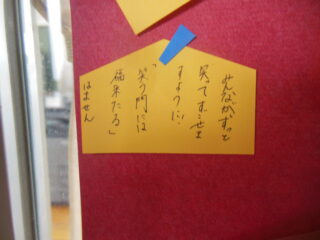 みんながずっと
笑てすごせま
すように!
「笑う門には
福来たる」
はません